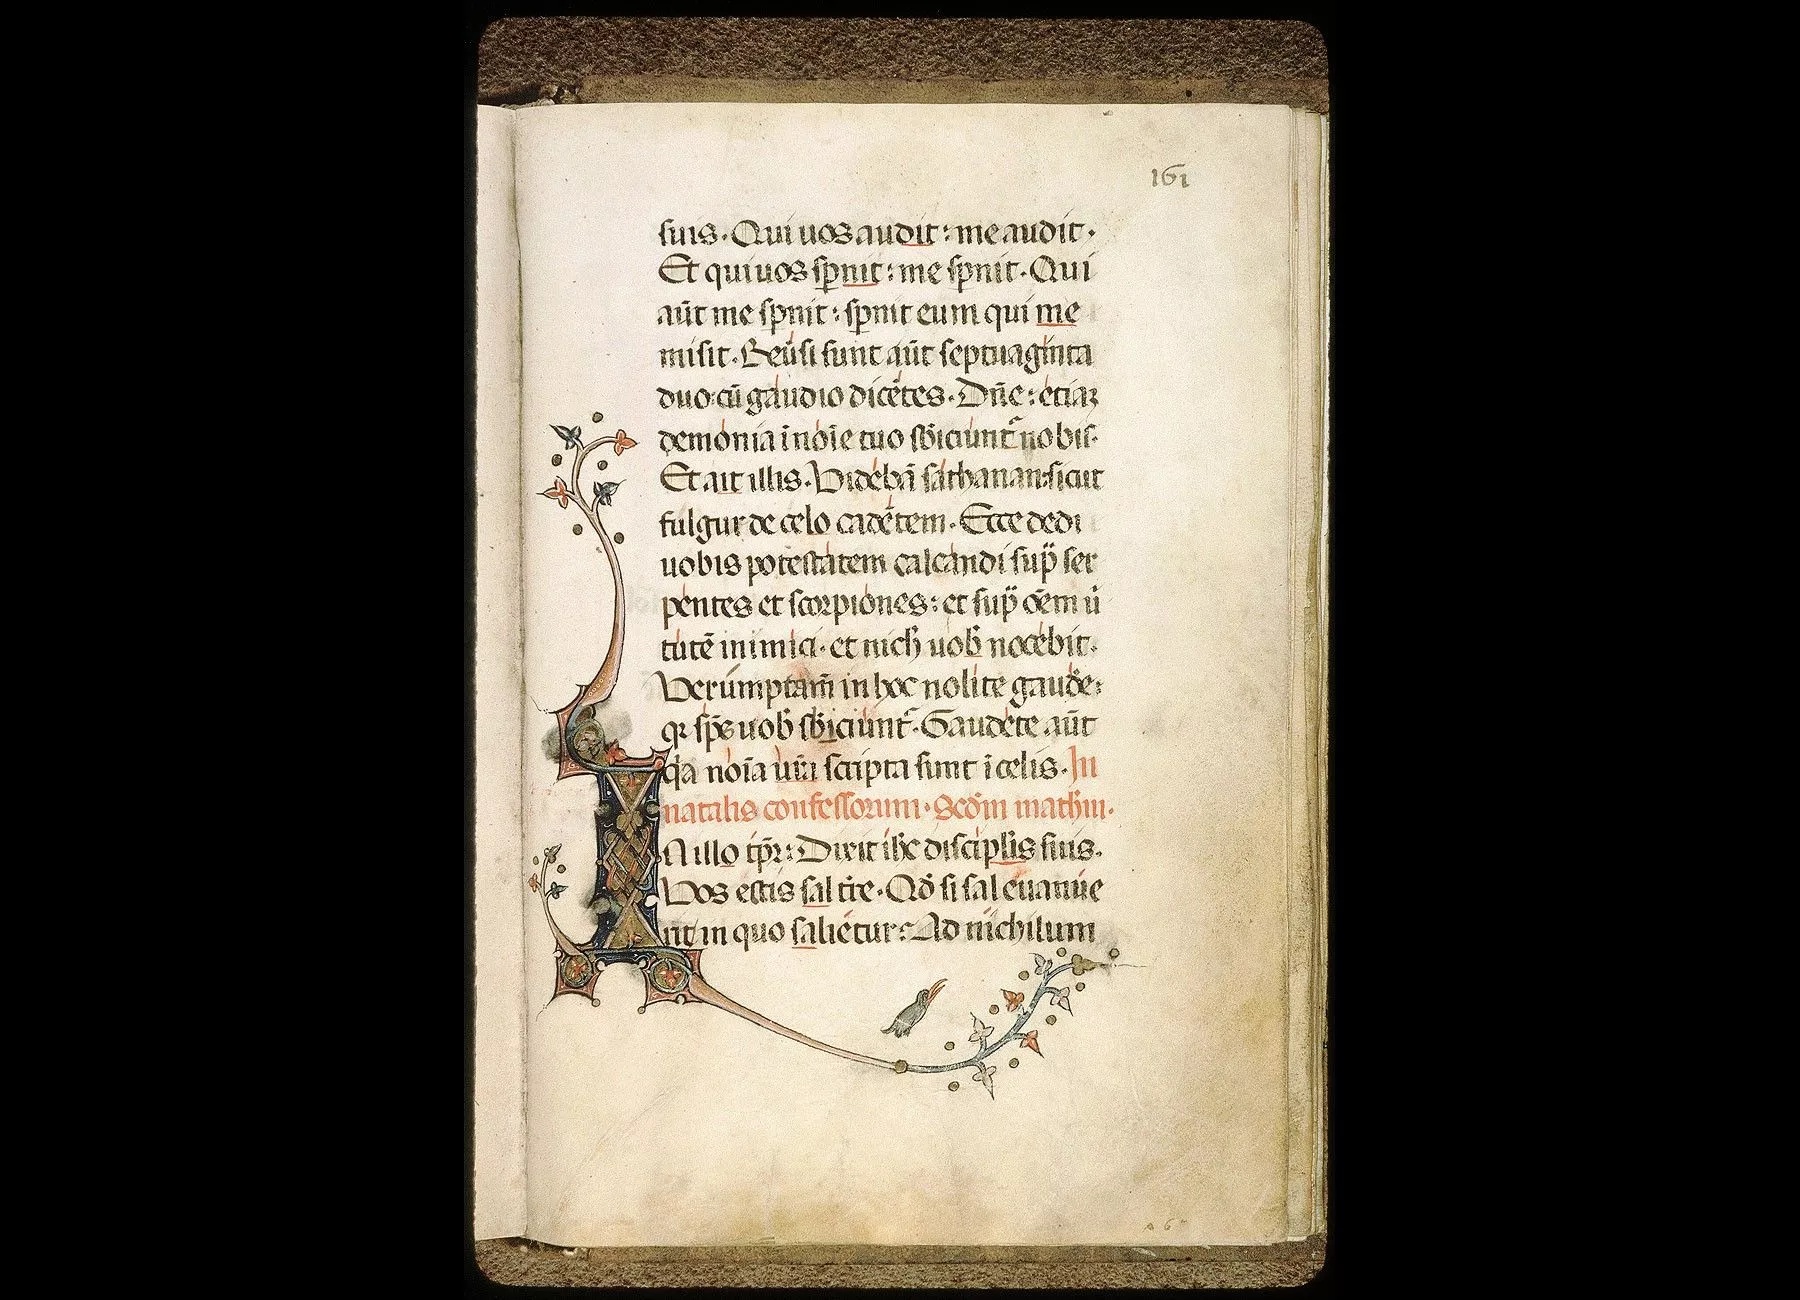 161
suis. Qui uos audit: me audit.
Et qui uos sp̱nit: me sp̱nit. Qui
aūt me sp̱nit: sp̱nit eum qui me
misit. Reũsi sunt aūt septuaginta
duo cū gaudio dicẽtes. Dn̄e: etiaꝫ
demonia ī noīe tuo sb̄iciunt᷑ nobis.
Et ait illis. Videbā sathanan sicut
fulgur de celo cadẽtem. Ecce dedi
uobis potestatem calcandi sup̄ ser
pentes et scorpiones: et sup̄ oẽm ũ
tutē inimici. et nich̄ uob̄ nocebit.
Verumptam̄ in hoc nolite gaude:
qꝛ sp̄s uob̄ sb̄iciunt᷑. Gaudete aūt
qa noīa ura scripta sunt ī celis. In
natalis confessorum. Scd̄m math̄m.
In illo tp̄r: Dixit ih̄c discip̄lis suis.
Vos estis sal tr̄e. Qd̄ si sal euanue
rit in quo salietur: Ad nichilum